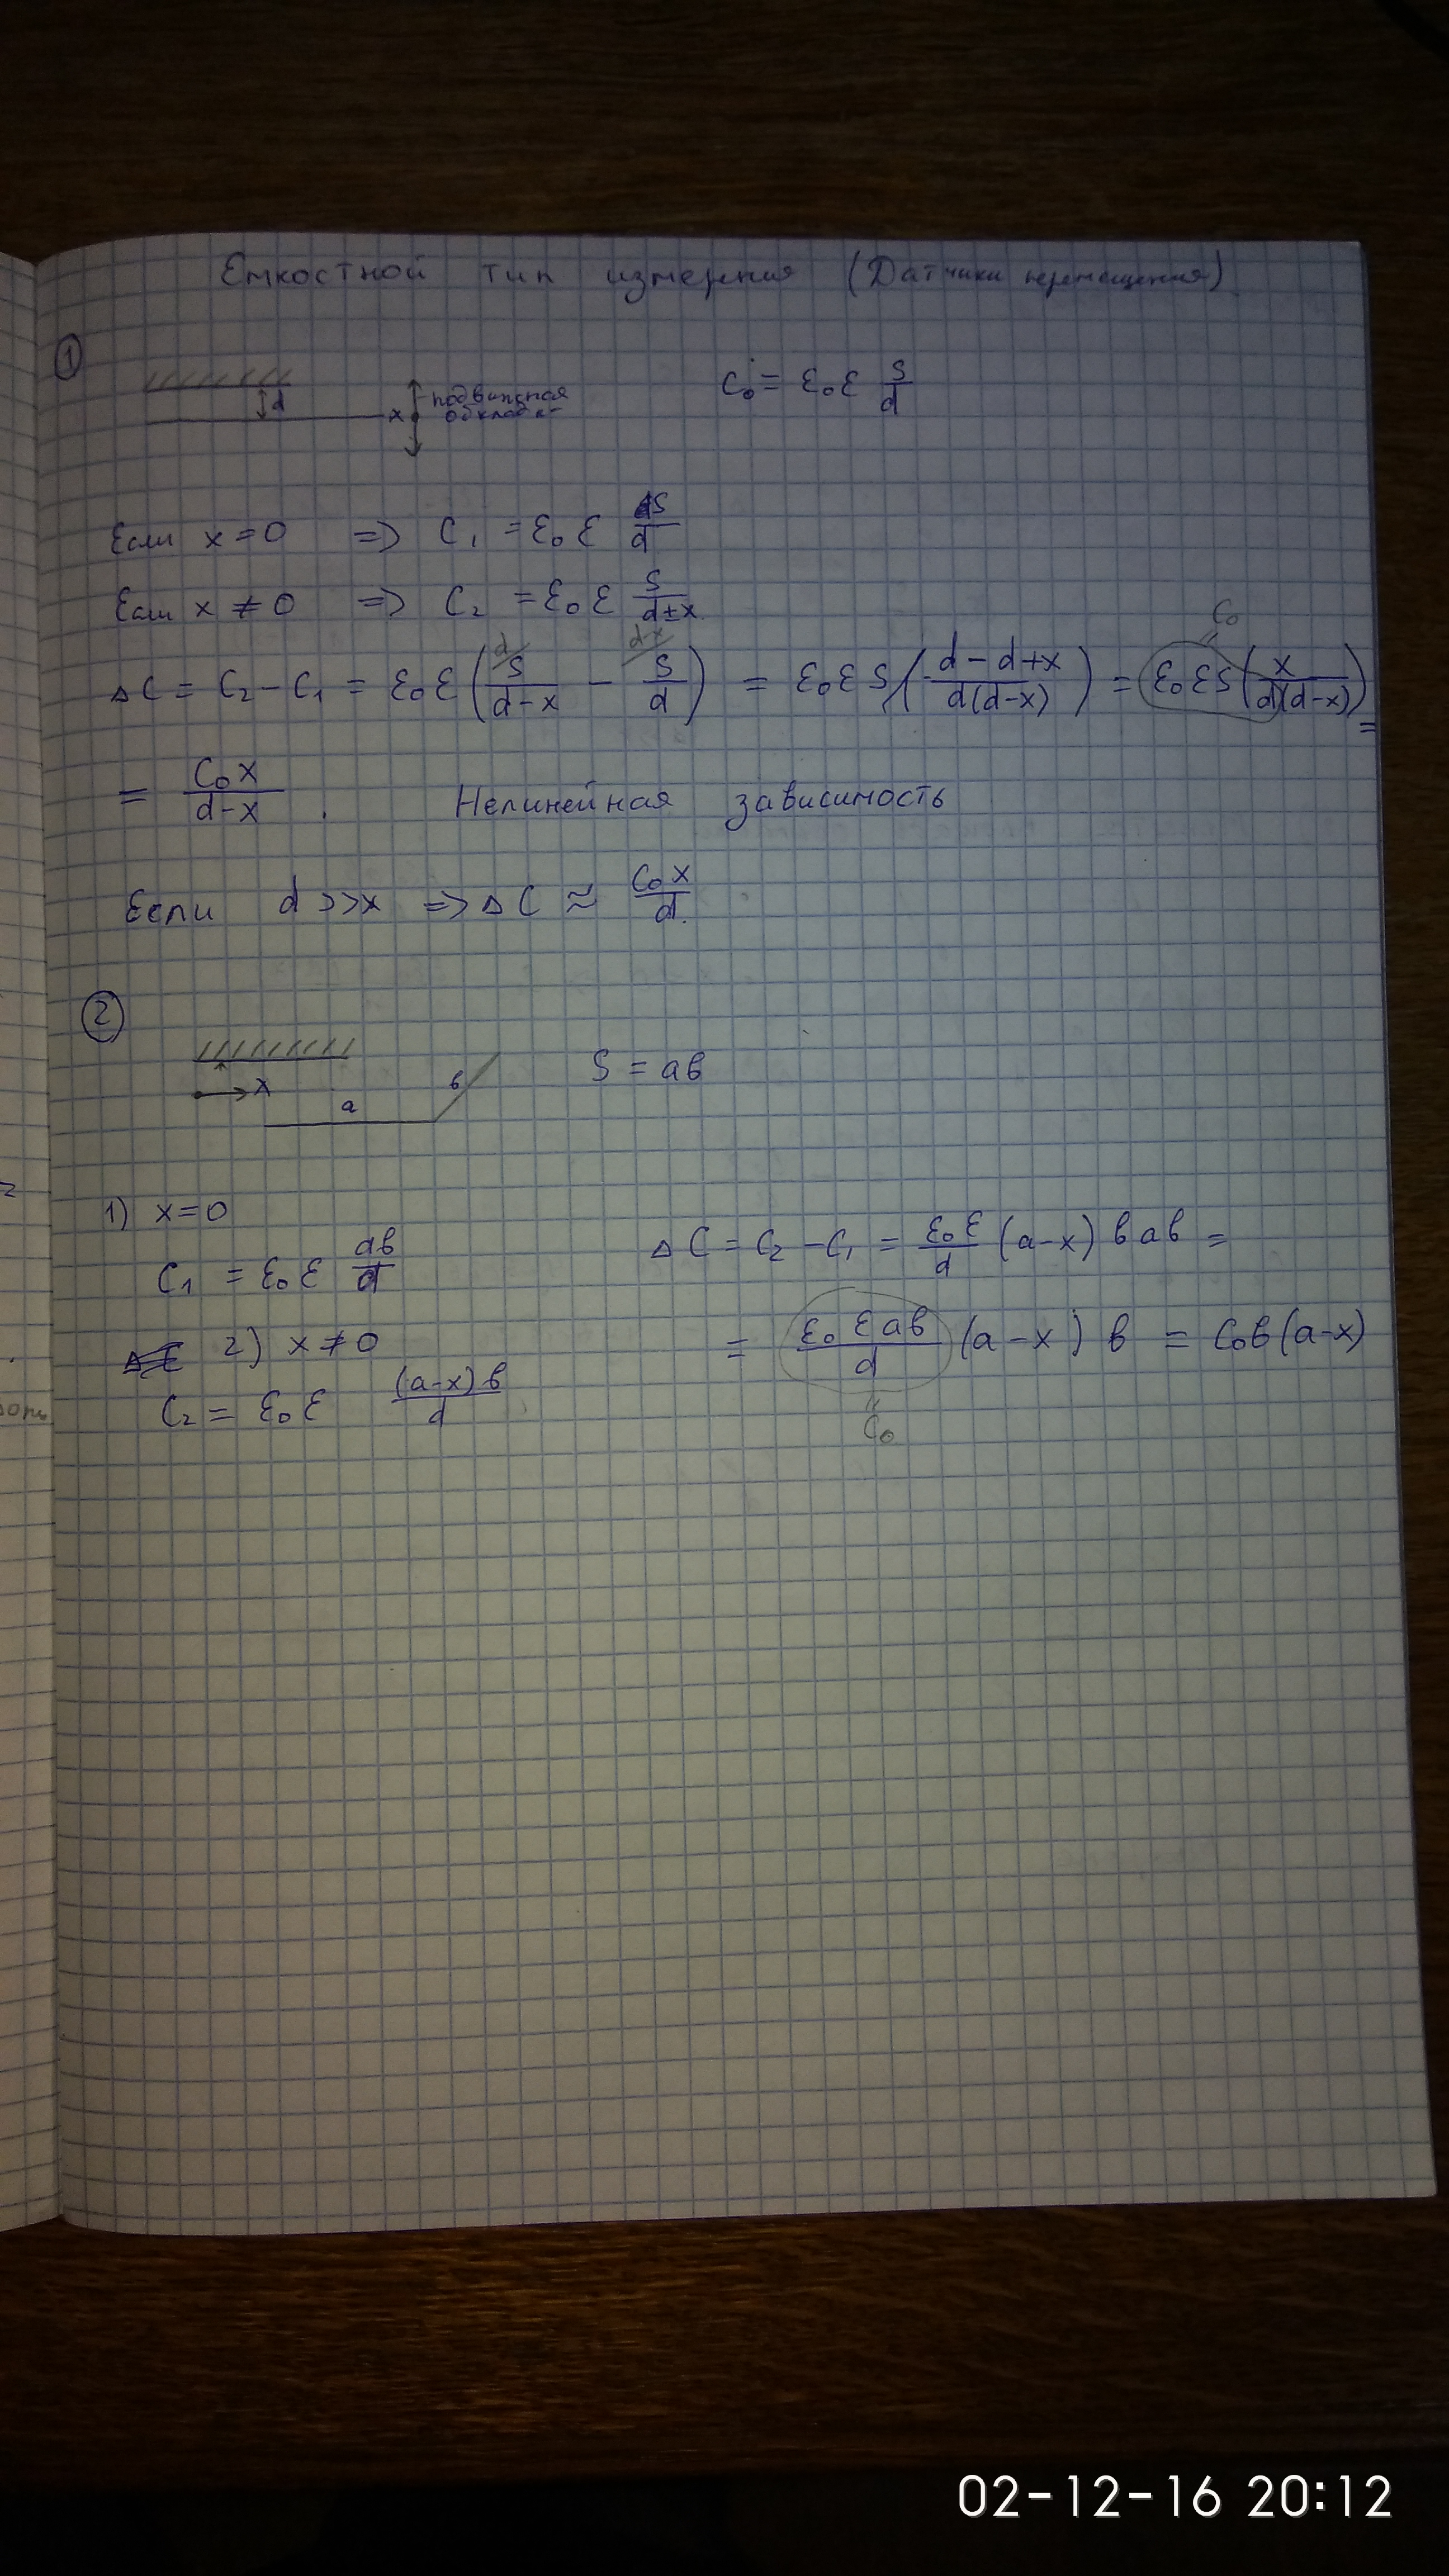 Емкостной тип измерения (Датчики перемещения)
1
d
x
подвижная
обкладка
C₀ = ε₀ε S/d
Если x = 0 => C₁ = ε₀ε S/d
Если x ≠ 0 => C₂ = ε₀ε S/(d±x)
ΔC = C₂ - C₁ = ε₀ε (S/(d-x) - S/d) = ε₀εS ((d-d+x)/(d(d-x))) = ε₀εS (x/(d(d-x))) =
C₀
= C₀x/(d-x). Нелинейная зависимость
Если d >> x => ΔC ≈ C₀x/d.
2
x
a
в
S = aв
1) x = 0
C₁ = ε₀ε aв/d
2) x ≠ 0
C₂ = ε₀ε (a-x)в/d
ΔC = C₂ - C₁ = ε₀ε/d (a-x) в aв =
= ε₀εaв/d (a-x) в = C₀в(a-x)
C₀
02-12-16 20:12